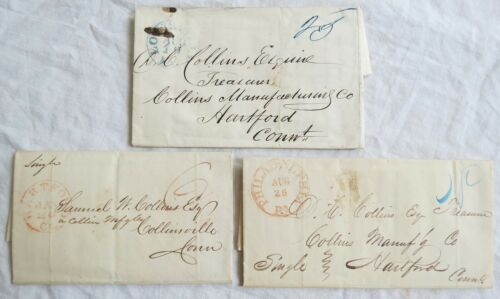 25
D. C. Collins Esquire
Treasurer
Collins Manufacturing Co
Hartford
Connt.
Single
Samuel W. Collins Esq
Collinsville
Conn
PHILADELPHIA
AUG
28
Pa
D. C. Collins Esq Treasurer
Collins Manuf'g Co
Single
Hartford
Connt